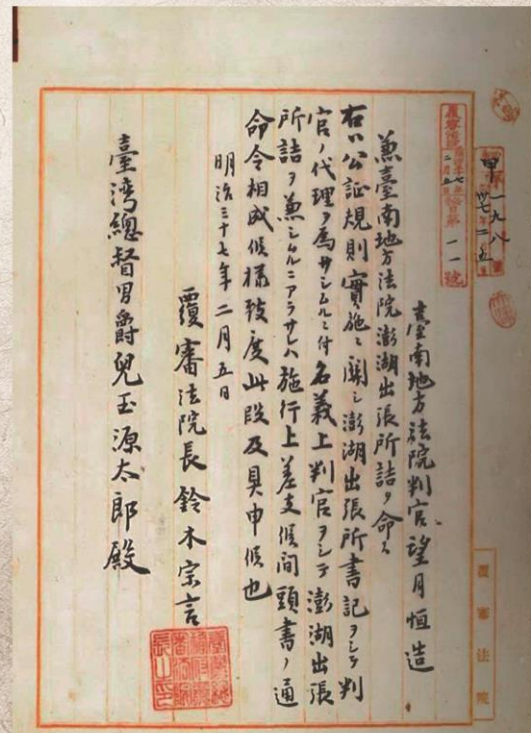 甲一九八
卅七年二、五
第一一號
臺南地方法院判官望月恒造
兼臺南地方法院澎湖出張所詰ヲ命ス
右ハ公証規則實施ニ關シ澎湖出張所書記ヲシテ判
官ノ代理ヲ為サシムルニ付名義上判官ヲシテ澎湖出張
所詰ヲ兼シムルニアラサレハ施行上差支候間頭書ノ通
命令相成候様致度此段及具申候也
明治三十七年二月五日
覆審法院長鈴木宗言
臺湾總督男爵兒玉源太郎殿
覆審法院